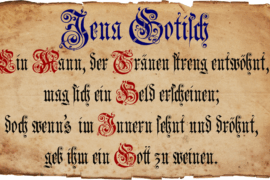 Jena Gotisch
Ein Mann, der Tränen streng entwöhnt,
mag sich ein Held erscheinen;
Doch wenn's im Innern sehnt und dröhnt,
geb ihm ein Gott zu weinen.